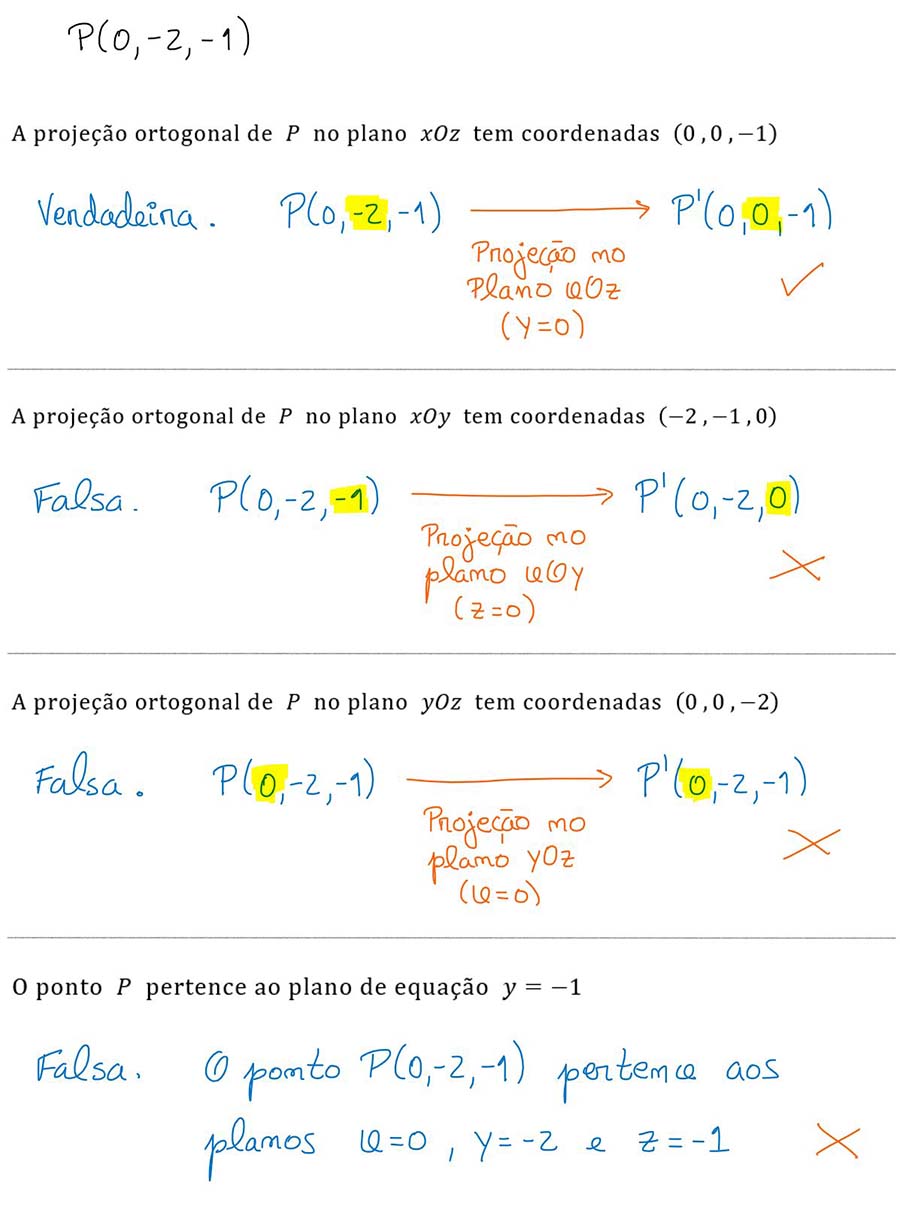 P(0,-2,-1)
A projeção ortogonal de P no plano xOz tem coordenadas (0,0,−1)
Verdadeira. P(0,-2,-1) → P'(0,0,-1)
Projeção no
Plano xOz
(y=0)
✓
A projeção ortogonal de P no plano xOy tem coordenadas (−2,−1,0)
Falsa. P(0,-2,-1) → P'(0,-2,0)
Projeção no
plano xOy
(z=0)
×
A projeção ortogonal de P no plano yOz tem coordenadas (0,0,−2)
Falsa. P(0,-2,-1) → P'(0,-2,-1)
Projeção no
plano yOz
(x=0)
×
O ponto P pertence ao plano de equação y = −1
Falsa. O ponto P(0,-2,-1) pertence aos
planos x=0, y=-2 e z=-1 ×